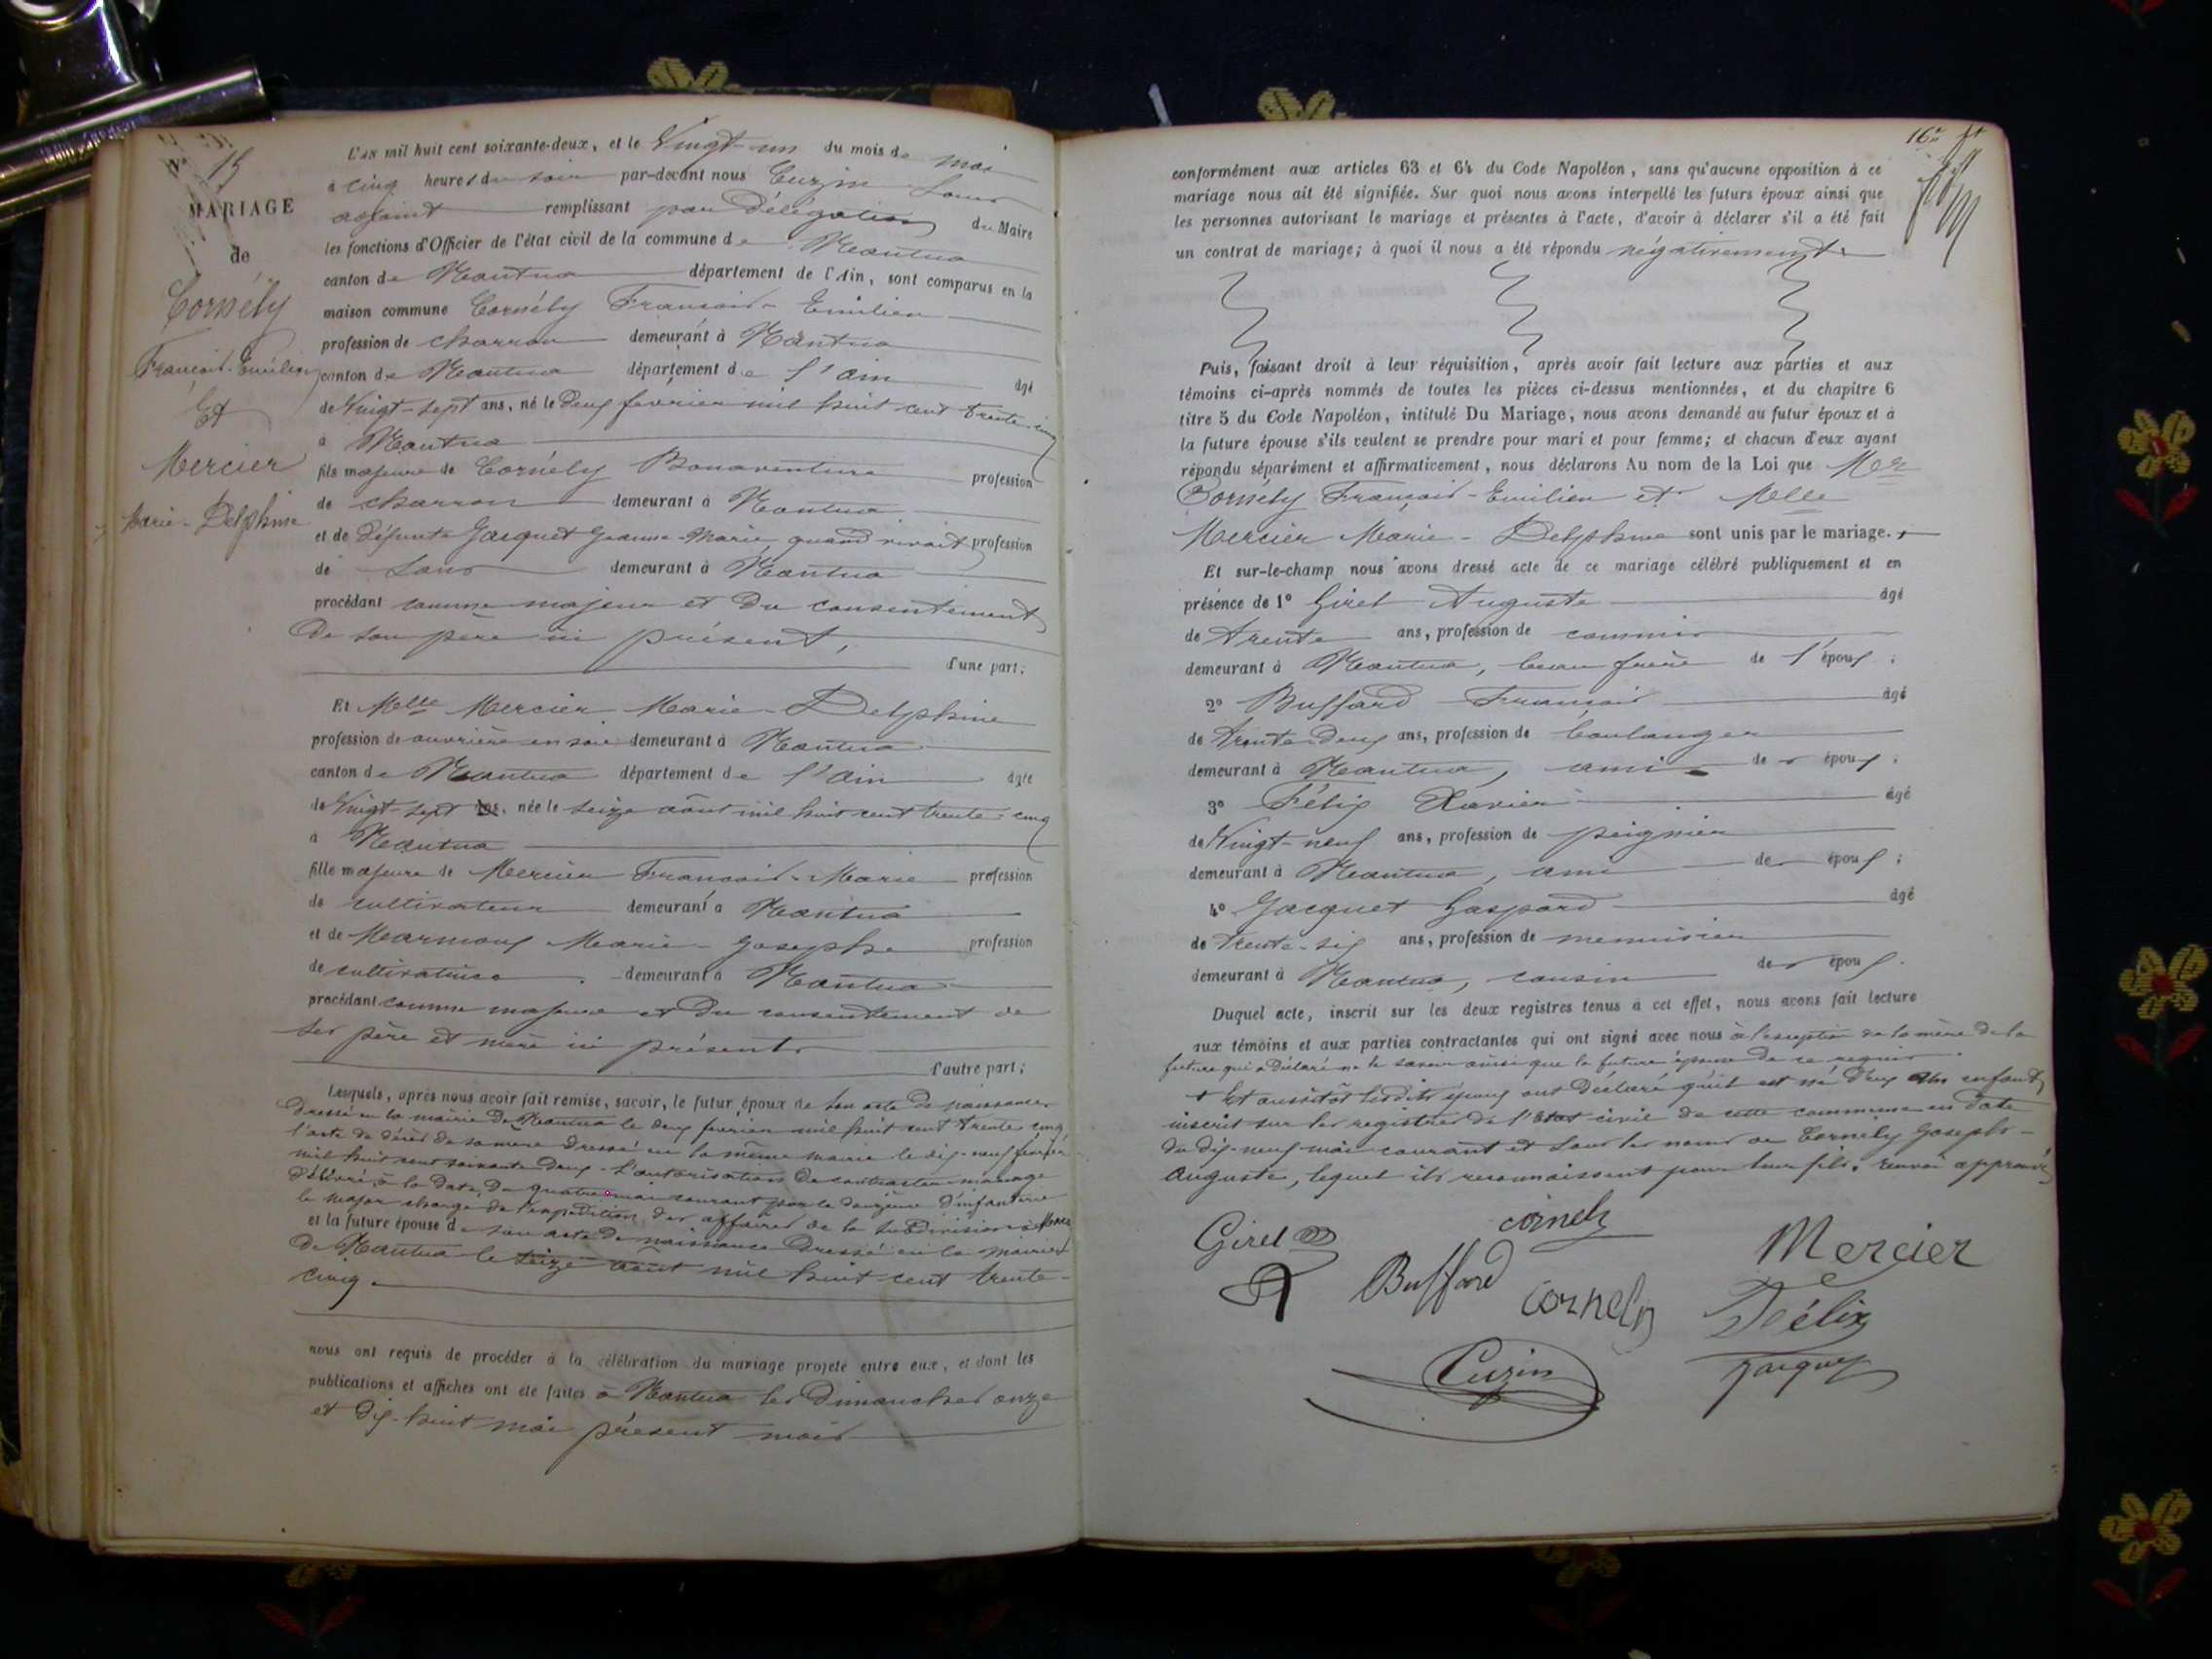 15
MARIAGE
de
Cornély
François-Emilien
Et
Mercier
Marie-Delphine
L'an mil huit cent soixante-deux, et le Vingt-un du mois de mai
à cinq heures du soir par-devant nous Cuzin Louis
adjoint remplissant par Délégation du Maire
les fonctions d'Officier de l'état civil de la commune de Nantua
canton de Nantua département de l'Ain, sont comparus en la
maison commune Cornély François-Emilien
profession de charron demeurant à Nantua
canton de Nantua département de l'Ain âgé
de Vingt-sept ans, né le Deux fevrier mil huit cent trente-cinq
à Nantua
fils majeure de Cornély Bonaventure profession
de charron demeurant à Nantua
et de défunte Jacquet Jeanne-Marie, quand vivait profession
de Sans demeurant à Nantua
procédant comme majeur et Du consentement
De son père ici présent,
d'une part;
Et Melle Mercier Marie-Delphine
profession de ouvrière en soie demeurant à Nantua
canton de Nantua département de l'Ain âgée
de Vingt-sept ans, née le seize août mil huit cent trente-cinq
à Nantua
fille majeure de Mercier François-Marie profession
de cultivateur demeurant à Nantua
et de Marmoux Marie-Josephe profession
de cultivatrice demeurant à Nantua
procédant comme majeure et Du consentement de
ses père et mère ici présents
d'autre part;
Lesquels, après nous avoir fait remise, savoir, le futur époux de son acte de naissance
dressé en la mairie de Nantua le deux fevrier mil huit cent trente cinq
l'acte de décès de sa mère dressé en la même mairie le dix-neuf février
mil huit cent soixante deux - L'autorisation de contracter mariage
délivré à la date du quatre mai courant par le douzième d'infanterie
le major chargé de l'expédition des affaires de la subdivision
et la future épouse de son acte de naissance dressé en la mairie
de Nantua le seize août mil huit cent trente-
cinq.
nous ont requis de procéder à la célébration du mariage projeté entre eux, et dont les
publications et affiches ont été faites à Nantua les Dimanches onze
et dix-huit mai présent mois
16
conformément aux articles 63 et 64 du Code Napoléon, sans qu'aucune opposition à ce
mariage nous ait été signifiée. Sur quoi nous avons interpellé les futurs époux ainsi que
les personnes autorisant le mariage et présentes à l'acte, d'avoir à déclarer s'il a été fait
un contrat de mariage; à quoi il nous a été répondu négativement
Puis, faisant droit à leur réquisition, après avoir fait lecture aux parties et aux
témoins ci-après nommés de toutes les pièces ci-dessus mentionnées, et du chapitre 6
titre 5 du Code Napoléon, intitulé Du Mariage, nous avons demandé au futur époux et à
la future épouse s'ils veulent se prendre pour mari et pour femme; et chacun d'eux ayant
répondu séparément et affirmativement, nous déclarons Au nom de la Loi que Mr
Cornély François-Emilien et Melle
Mercier Marie-Delphine sont unis par le mariage. +
Et sur-le-champ nous avons dressé acte de ce mariage célébré publiquement et en
présence de 1° Girel Auguste âgé
de trente ans, profession de commis
demeurant à Nantua, beau frère de l'époux;
2° Buffard François âgé
de trente-deux ans, profession de boulanger
demeurant à Nantua, ami de époux;
3° Félix Xavier âgé
de Vingt-neuf ans, profession de peignier
demeurant à Nantua, ami de époux;
4° Jacquet Gaspard âgé
de trente-six ans, profession de menuisier
demeurant à Nantua, cousin de époux.
Duquel acte, inscrit sur les deux registres tenus à cet effet, nous avons fait lecture
aux témoins et aux parties contractantes qui ont signé avec nous à l'exception de la mère de la
future qui a déclaré ne le savoir ainsi que la future épouse de ce requis.
+ Et aussitôt lesdits époux ont déclaré qu'il est né d'eux un enfant
inscrit sur les registres de l'Etat civil de cette commune en date
du dix-neuf mai courant et sous les noms de Cornély Joseph-
Auguste, lequel ils reconnaissent pour leur fils. renvoi approuvé
Girel cornely Mercier
Buffard cornely Félix
Cuzin Jacquet